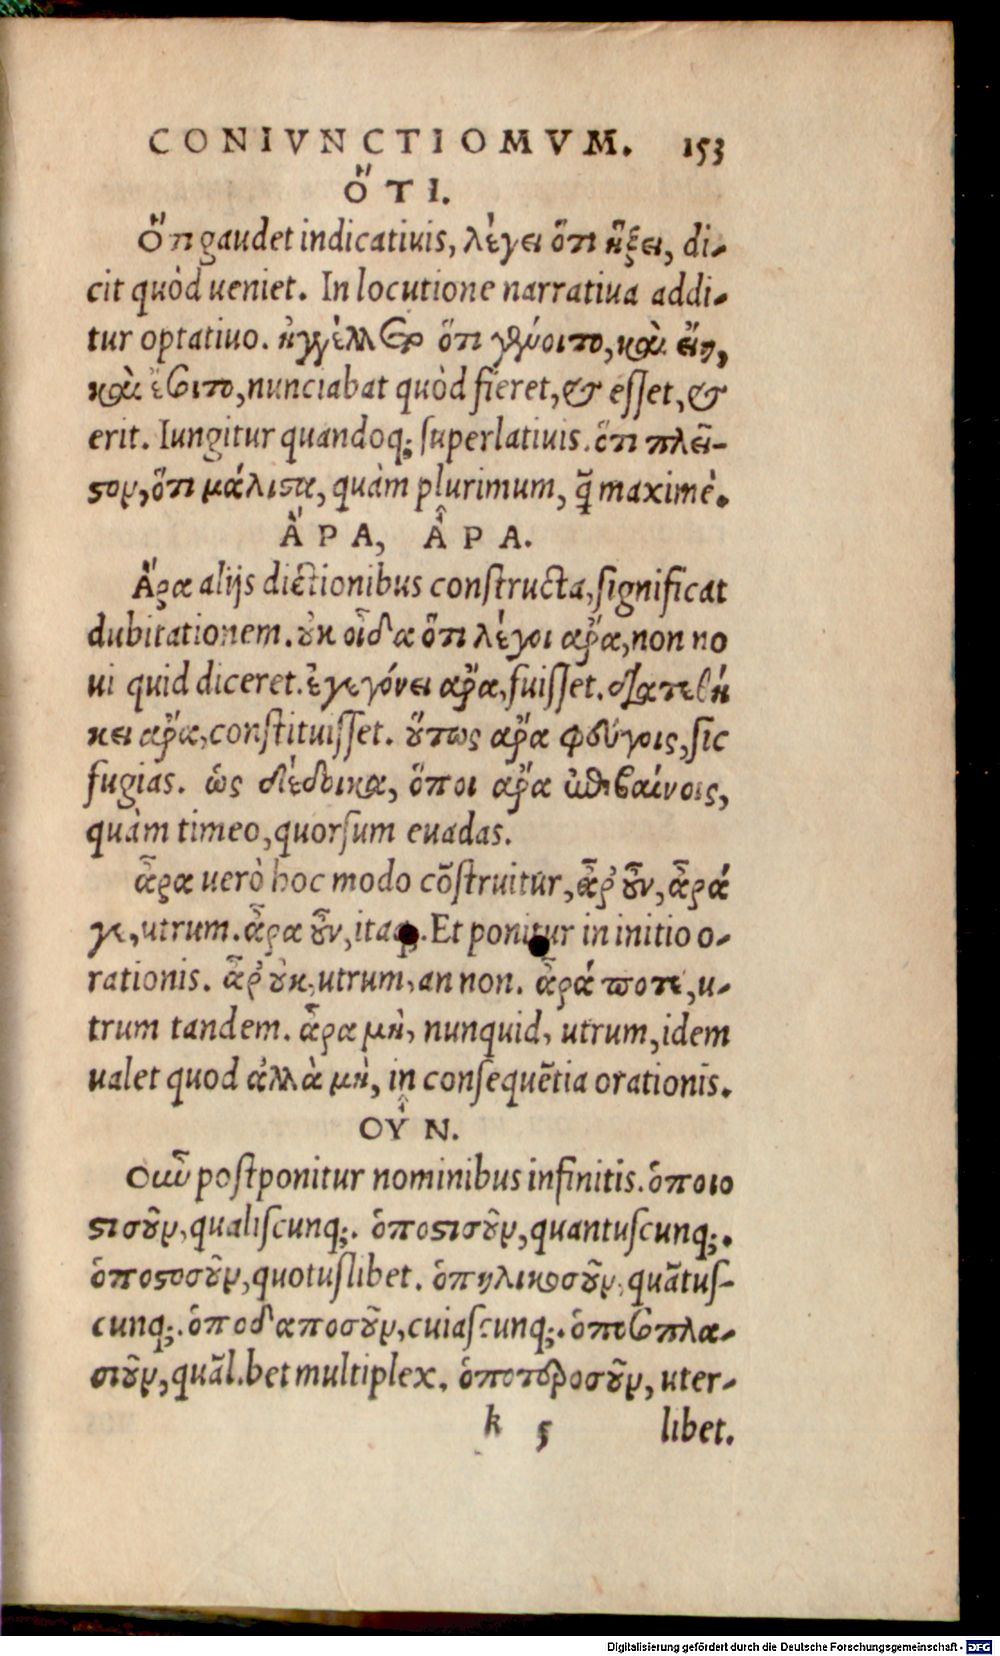 CONIVNCTIOMVM. 153
Ὅ Τ Ι.
Ὅτι gaudet indicatiuis, λέγει ὅτι ἥξει, di-
cit quòd ueniet. In locutione narratiua addi-
tur optatiuo. ἤγγελλεν ὅτι γένοιτο, καὶ εἴη,
καὶ ἔσοιτο, nunciabat quòd fieret, & esset, &
erit. Iungitur quandoq; superlatiuis. ὅτι πλεῖ-
στον, ὅτι μάλιστα, quàm plurimum, q̃ maximè.
Ἄ Ρ Α, Ἆ Ρ Α.
Ἄρα alijs dictionibus constructa, significat
dubitationem. οὐκ οἶδα ὅτι λέγοι ἄρα, non no
ui quid diceret. ἐγεγόνει ἄρα, fuisset. διατεθή
κει ἄρα, constituisset. οὕτως ἄρα φεύγοις, sic
fugias. ὡς δέδοικα, ὅποι ἄρα ἀποβαίνοις,
quàm timeo, quorsum euadas.
ἆρα uerò hoc modo cõstruitur, ἆρ' οὖν, ἆρά
γε, utrum. ἆρα οὖν, itaq;. Et ponitur in initio o-
rationis. ἆρ' οὐκ, utrum, an non. ἆρά ποτε, u-
trum tandem. ἆρα μὴ, nunquid, utrum, idem
ualet quod ἀλλὰ μὴ, in consequẽtia orationis.
ΟΥ̓͂ Ν.
Οὖν postponitur nominibus infinitis. ὁποιο
στισοῦν, qualiscunq;. ὁποστισοῦν, quantuscunq;.
ὁποστοσοῦν, quotuslibet. ὁπηλικοσοῦν, quãtus-
cunq;. ὁποδαποσοῦν, cuiascunq;. ὁποσαπλα-
σιοῦν, quãl.bet multiplex. ὁποτεροσοῦν, uter-
k 5 libet.
Digitalisierung gefördert durch die Deutsche Forschungsgemeinschaft - DFG